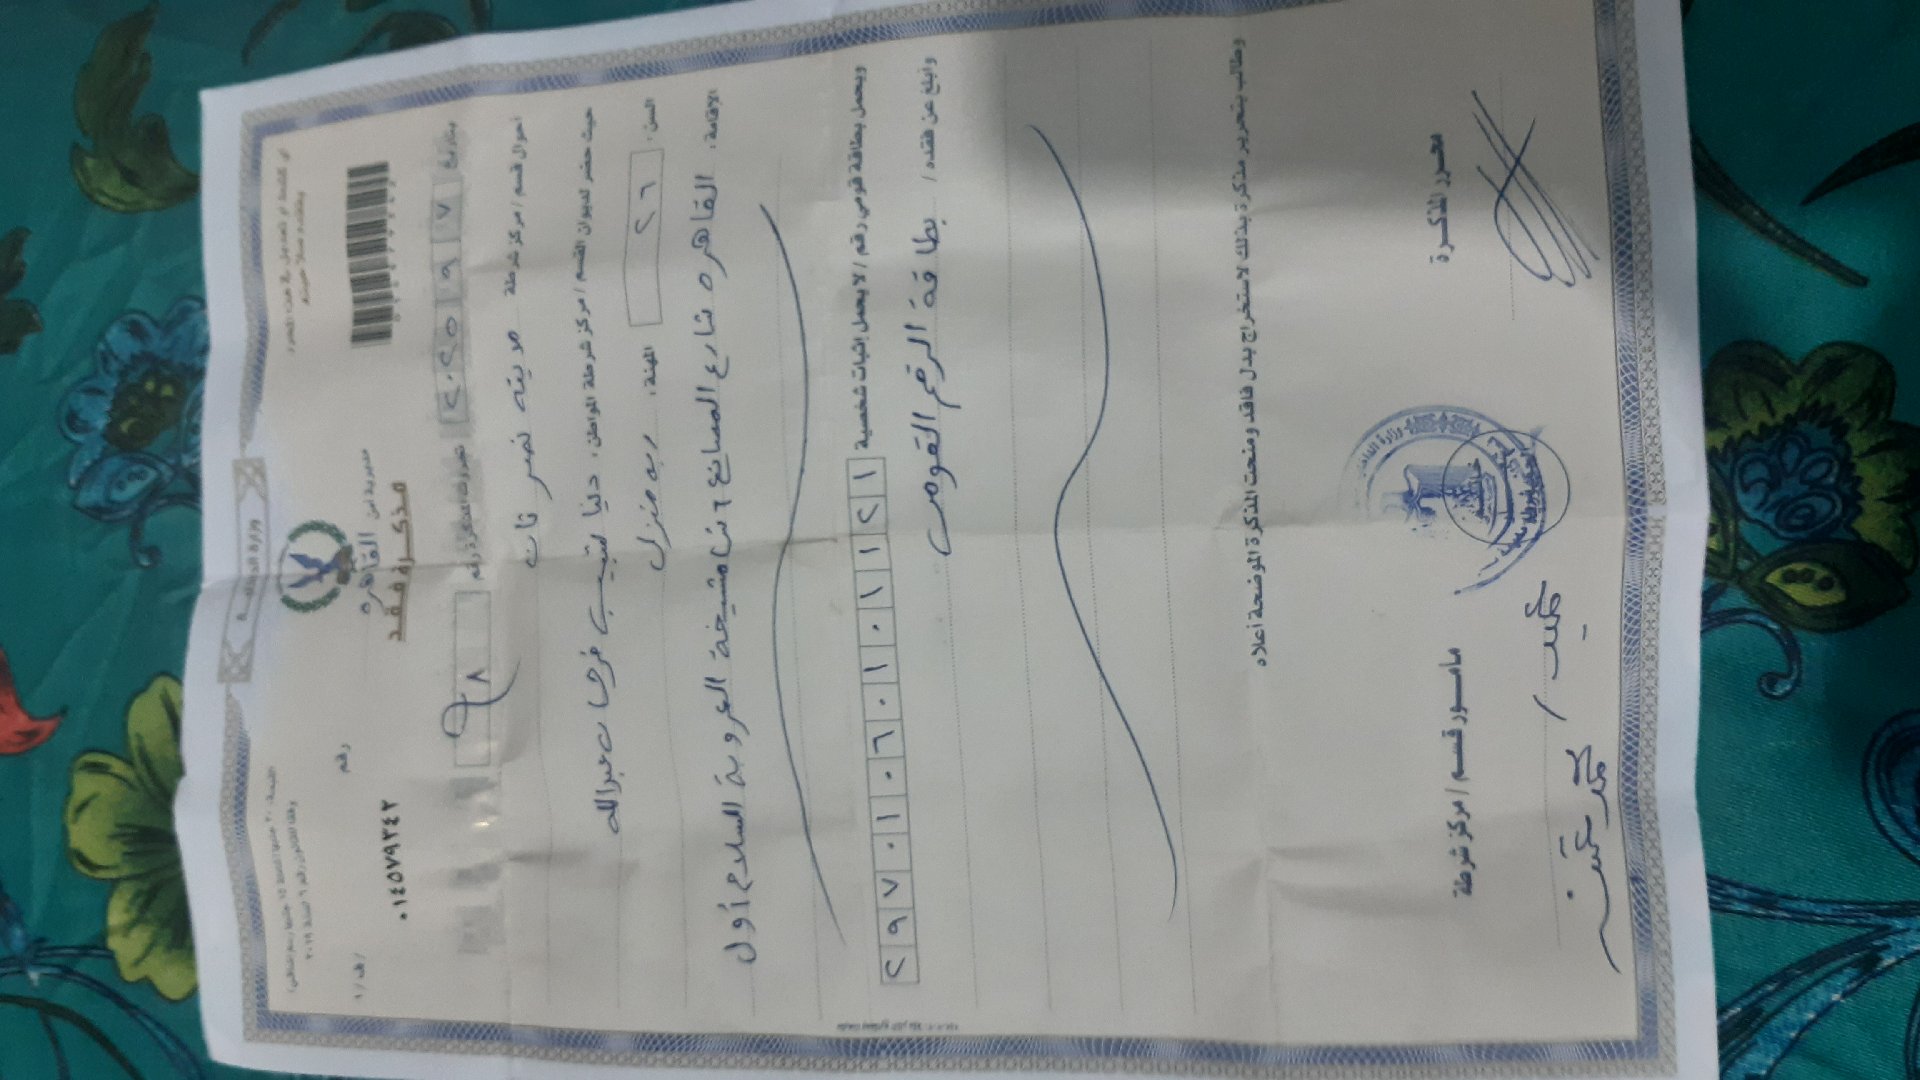 وزارة الداخلية
أي كشط أو تعديل في هذا المحرر
يفقده صلاحيته
مديرية أمن القاهرة
مذكرة فقد
وفقا للقانون رقم ٩ لسنة ٢٠١٩
رقم
٠١٤٥٧٩٣٤٢
بتاريخ ٢٠٢٥/٩/٧
أحوال قسم / مركز شرطة مدينة نصر ثان
حيث حضر لديوان القسم / مركز شرطة المواطن، داليا لبيب فرحات عبدالله
السن، ٢٦ المهنة، ربه منزل
الإقامة، القاهره شارع المصانع ٦ ش مشيخة العروبة السلام أول
ويحمل بطاقة قومى رقم / لا يحمل إثبات شخصية ٢٩٧٠١٠٦٠١٠١١٢١
وأبلغ عن فقده / بطاقة الرقم القومى
وطالب بتحرير مذكرة بذلك لاستخراج بدل فاقد ومنحت المذكرة الموضحة أعلاه
محرر المذكرة
مأمور قسم / مركز شرطة